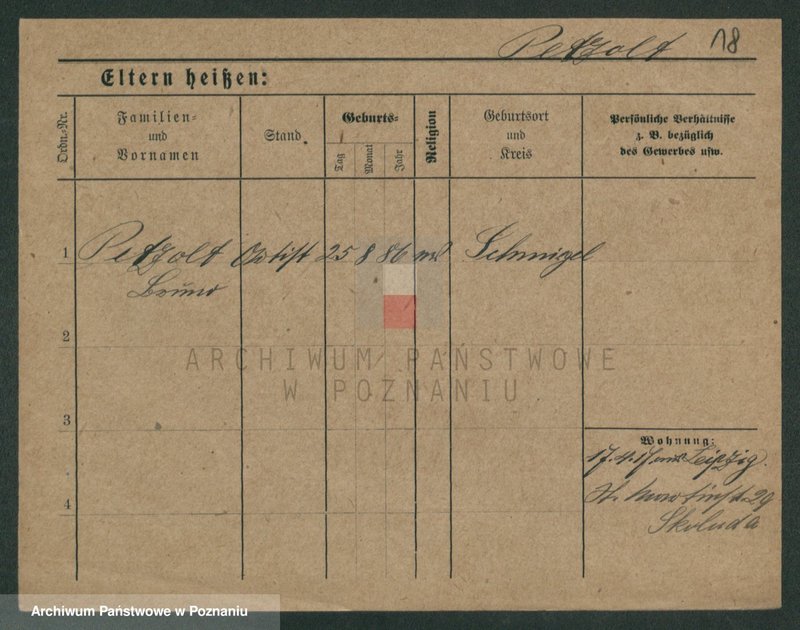 Petzolt 18
Eltern heißen:
Ordn.-Nr.
Familien-
und
Vornamen
Stand
Geburts-
Tag
Monat
Jahr
Religion
Geburtsort
und
Kreis
Persönliche Verhältnisse
z. B. bezüglich
des Gewerbes usw.
1 Petzolt Artist 25 8 86 Schmigel
Bruno
2
3
4
Wohnung:
17.4.17 aus Leipzig.
St. Martinstr. 29
Skoluda
ARCHIWUM PAŃSTWOWE
W POZNANIU
Archiwum Państwowe w Poznaniu